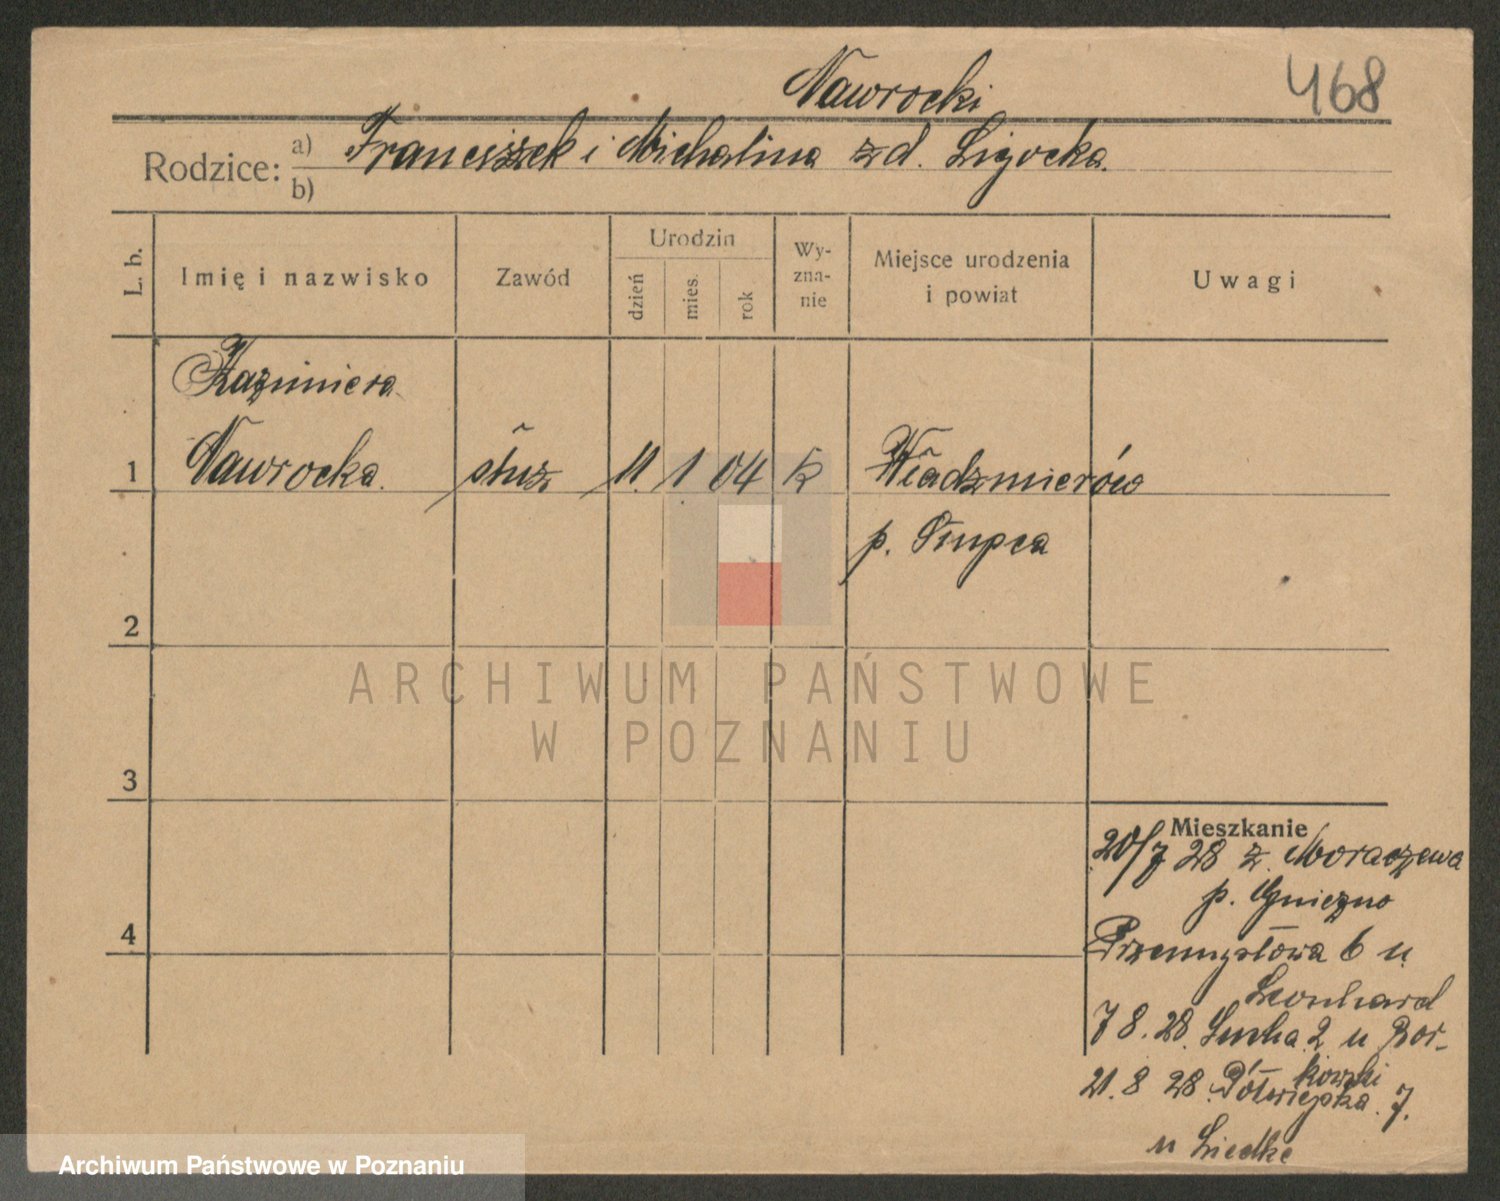 Nawrocki
468
Rodzice: a) Franciszek i Michalina z d. Ligocka.
b)
L. b.
Imię i nazwisko
Zawód
Urodzin
dzień
mies.
rok
Wy-
zna-
nie
Miejsce urodzenia
i powiat
Uwagi
Kazimiera
1 Nawrocka. służ. 11. 1. 04 k Władzmierów
p. Słupca
2
ARCHIWUM PAŃSTWOWE
W POZNANIU
3
4
Mieszkanie
20/7 28 z. Moraczewa
p. Gniezno
Przemysłowa 6 u.
Leonhard
7 8. 28. Sucha 2 u Bor-
kowski
21. 8 28. Półwiejska. 7.
u Liedke
Archiwum Państwowe w Poznaniu